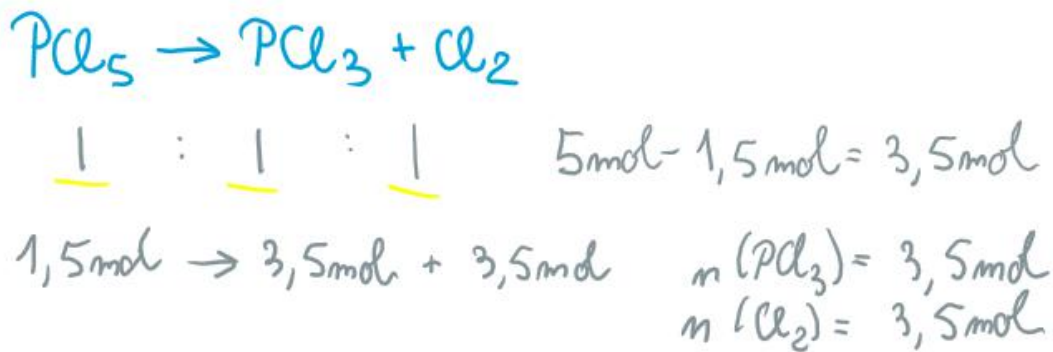 PCl₅ → PCl₃ + Cl₂
1 : 1 : 1
5mol - 1,5mol = 3,5mol
1,5mol → 3,5mol + 3,5mol
n (PCl₃) = 3,5mol
n (Cl₂) = 3,5mol